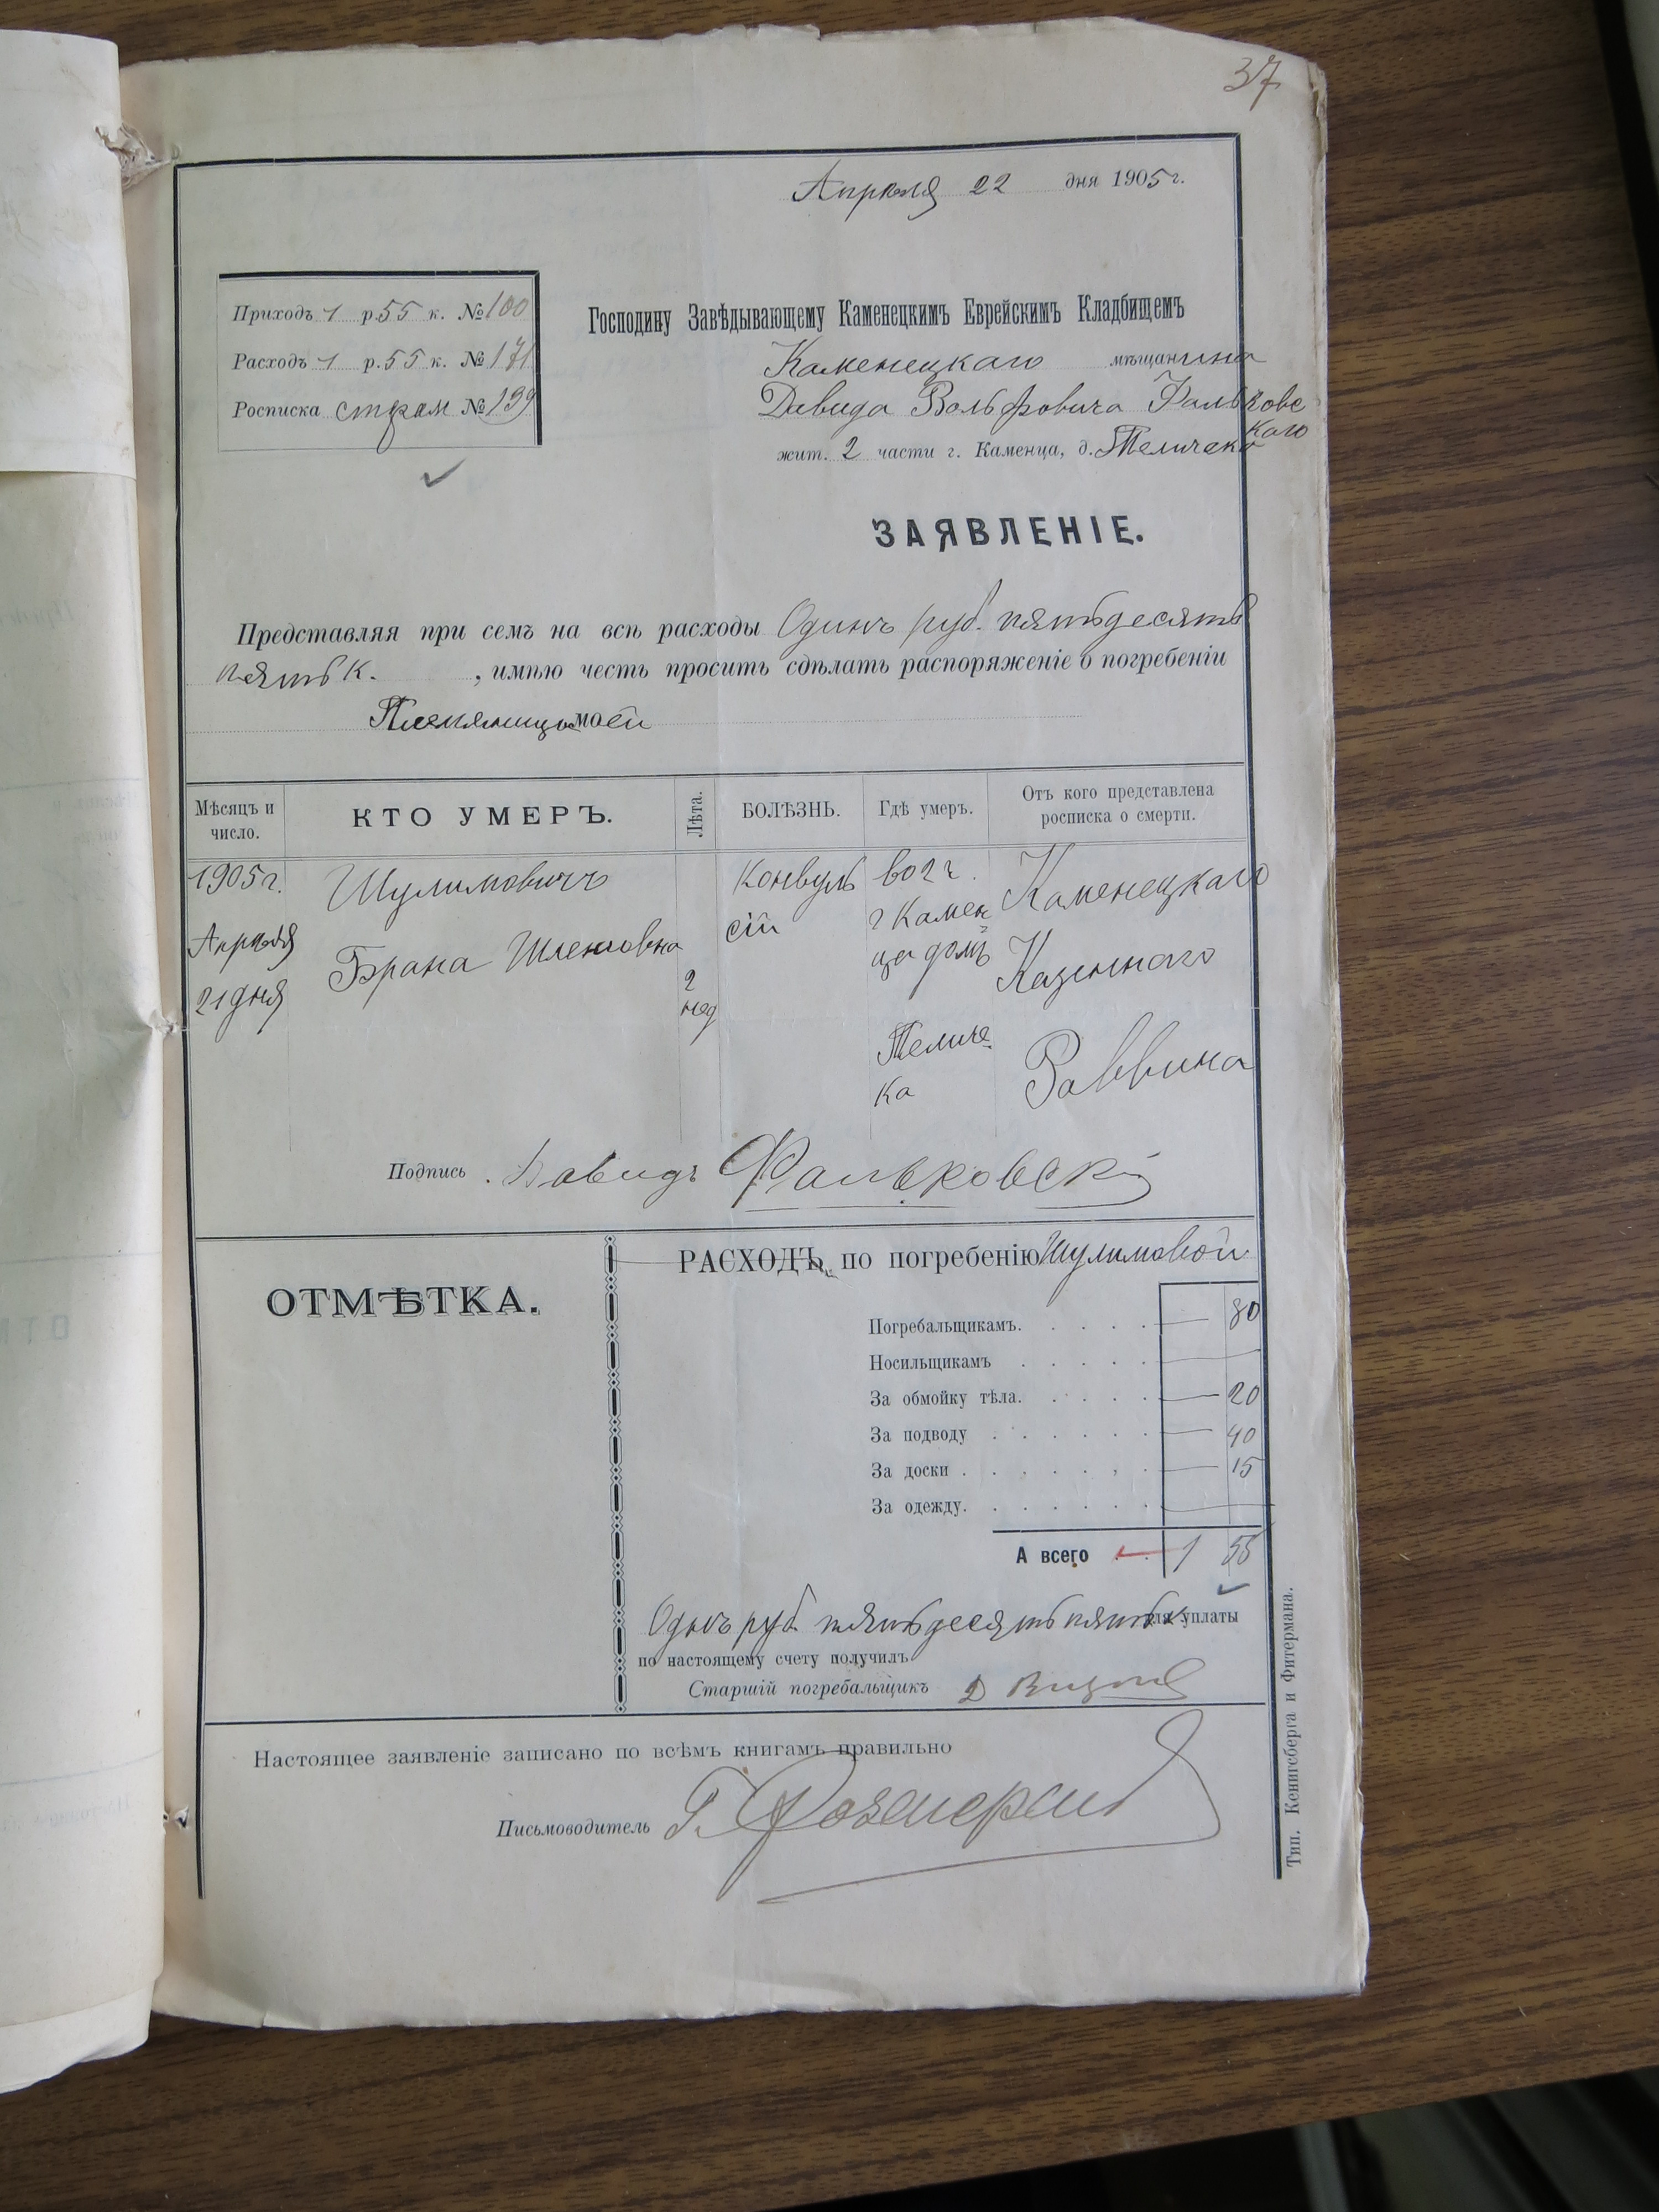 37
Апрѣля 22 дня 1905 г.
Приходъ 1 р. 55 к. № 100
Расходъ 1 р. 55 к. № 171
Росписка страм № 199
Господину Завѣдывающему Каменецкимъ Еврейскимъ Кладбищемъ
Каменецкаго мѣщанина
Давида Вольфовича Фальковс
каго
жит. 2 части г. Каменца, д.
ЗАЯВЛЕНІЕ.
Представляя при семъ на всѣ расходы Одинъ руб. пятьдесятъ
пять к. , имѣю честь просить сдѣлать распоряженіе о погребеніи
Племяницы моей
Мѣсяцъ и число.
КТО УМЕРЪ.
Лѣта.
БОЛѢЗНЬ.
Гдѣ умеръ.
Отъ кого представлена росписка о смерти.
1905 г.
Апрѣля
21 дня
Шулимовичъ
Брана
2
нед
Конвуль
сій
во 2 ч.
г Камен
ца домъ
Каменецкаго
Казеннаго
Раввина
Подпись Давидъ Фальковскій
ОТМѢТКА.
РАСХОДЪ по погребенію Шулимовой
Погребальщикамъ. — 80
Носильщикамъ —
За обмойку тѣла. — 20
За подводу — 40
За доски — 15
За одежду. —
А всего 1 55
Одинъ руб. пятьдесятъ пять к для уплаты
по настоящему счету получилъ
Старшій погребальщикъ
Настоящее заявленіе записано по всѣмъ книгамъ правильно
Письмоводитель Г.
Тип. Кенигсберга и Фитермана.